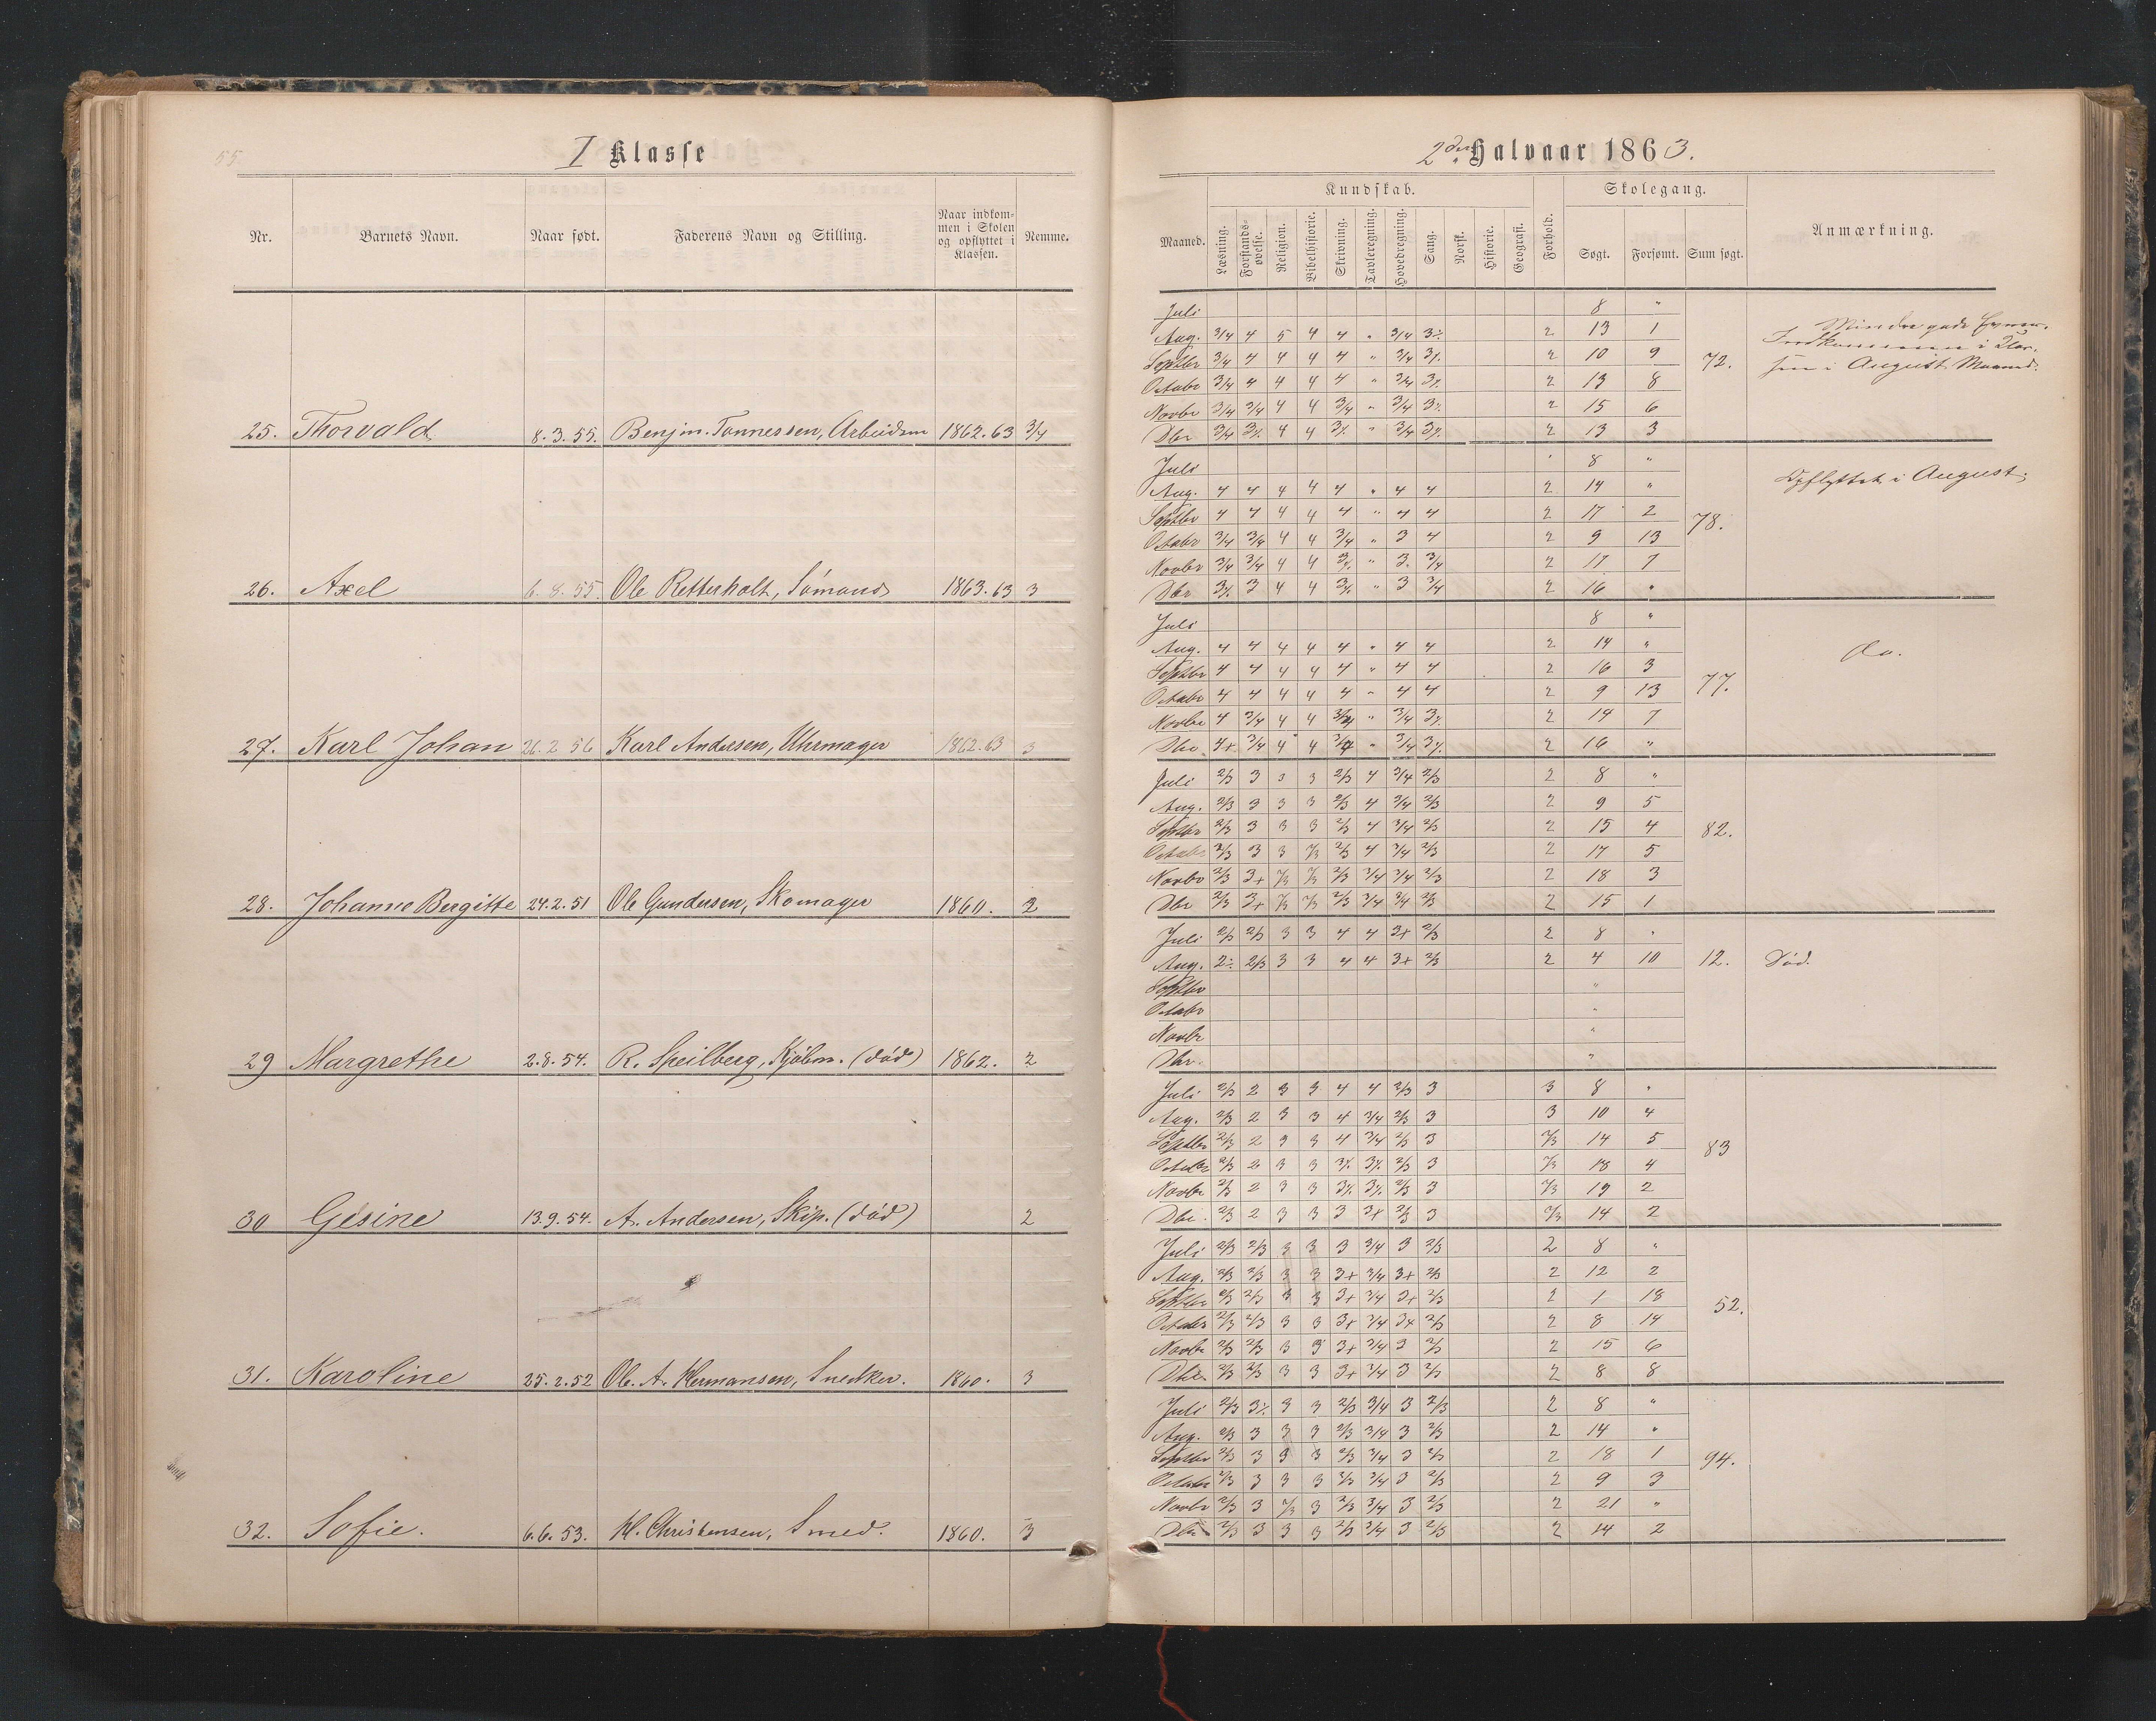 55.
I Klasse
Nr. Barnets Navn. Naar født. Faderens Navn og Stilling. Naar indkommen i Skolen og opflyttet i Klassen. Nemme.
25. Thorvald 8.3.55. Benjm. Tønnessen, Arbeidsm 1862.63 3/4
26. Axel 6.8.55. Ole Retterholt, Sømand 1863.63 3
27. Karl Johan 26.2 56 Karl Andersen, Uhrmager 1862.63 3
28. Johanne Bergitte 24.2.51 Ole Gundersen, Skomager 1860. 2
29 Margrethe 2.8.54. R. Speilberg, Kjøbm. (død) 1862. 2
30 Gesine 13.9.54. A. Andersen, Skip. (død) 2
31. Karoline 25.2.52 Ole A. Hermansen, Snedker. 1860. 3
32. Sofie. 6.6.53. H. Christensen, Smed. 1860. 3
2den Halvaar 1863.
Kundskab. Skolegang.
Maaned. Læsning. Forstandsøvelse. Religion. Bibelhistorie. Skrivning. Tavleregning. Hovedregning. Sang. Norsk. Historie. Geografi. Forhold. Søgt. Forsømt. Sum søgt. Anmærkning.
Juli 8 "
Aug. 3/4 4 5 4 4 " 3/4 3÷ 2 13 1 Mindre gode
Septbr 3/4 4 4 4 4 " 3/4 3÷ 2 10 9 72. i
Octobr 3/4 4 4 4 4 " 3/4 3÷ 2 13 8 i August Maaned.
Novbr 3/4 3/4 4 4 3/4 " 3/4 3÷ 2 15 6
Dbr 3/4 3÷ 4 4 3÷ " 3/4 3÷ 2 13 3
Juli 8 "
Aug. 4 4 4 4 4 " 4 4 2 14 " Opflyttet i August.
Septbr 4 4 4 4 4 " 4 4 2 17 2 78.
Octobr 3/4 3/4 4 4 3/4 " 3 4 2 9 13
Novbr 3/4 3/4 4 4 3÷ " 3. 3/4 2 17 7
Dbr 3÷ 3 4 4 3÷ " 3 3/4 2 16 "
Juli 8 "
Aug. 4 4 4 4 4 " 4 4 2 14 " Do.
Septbr 4 4 4 4 4 " 4 4 2 16 3
Octobr 4 4 4 4 4 " 4 4 2 9 13 77.
Novbr 4 3/4 4 4 3/4 " 3/4 3÷ 2 14 7
Dbr 4+ 3/4 4 4 3/4 " 3/4 3÷ 2 16 "
Juli 2/3 3 3 3 2/3 4 3/4 2/3 2 8 "
Aug. 2/3 3 3 3 2/3 4 3/4 2/3 2 9 5
Septbr 2/3 3 3 3 2/3 4 3/4 2/3 2 15 4 82.
Octobr 2/3 3 3 2/3 2/3 4 3/4 2/3 2 17 5
Novbr 2/3 3+ 2/3 2/3 2/3 3/4 3/4 2/3 2 18 3
Dbr 2/3 3+ 2/3 2/3 2/3 3/4 3/4 2/3 2 15 1
Juli 2/3 2/3 3 3 4 4 3+ 2/3 2 8 "
Aug. 2÷ 2/3 3 3 4 4 3+ 2/3 2 4 10 12. Død.
Septbr "
Octobr "
Novbr "
Dbr. "
Juli 2/3 2 3 3 4 4 2/3 3 3 8 "
Aug. 2/3 2 3 3 4 3/4 2/3 3 3 10 4
Septbr 2/3 2 3 3 4 3/4 2/3 3 2/3 14 5 83
Octobr 2/3 2 3 3 3÷ 3÷ 2/3 3 2/3 18 4
Novbr 2/3 2 3 3 3÷ 3÷ 2/3 3 2/3 19 2
Dbr. 2/3 2 3 3 3 3+ 2/3 3 2/3 14 2
Juli 2/3 2/3 3 3 3 3/4 3 2/3 2 8 "
Aug. 2/3 2/3 3 3 3+ 3/4 3+ 2/3 2 12 2
Septbr 2/3 2/3 3 3 3+ 3/4 3+ 2/3 2 1 18 52.
Octobr 2/3 2/3 3 3 3+ 3/4 3+ 2/3 2 8 14
Novbr 2/3 2/3 3 3 3+ 3/4 3 2/3 2 15 6
Dbr. 2/3 2/3 3 3 3+ 3/4 3 2/3 2 8 8
Juli 2/3 3÷ 3 3 2/3 3/4 3 2/3 2 8 "
Aug. 2/3 3 3 3 2/3 3/4 3 2/3 2 14 "
Septbr 2/3 3 3 3 2/3 3/4 3 2/3 2 18 1 94.
Octobr 2/3 3 3 3 2/3 3/4 3 2/3 2 9 3
Novbr 2/3 3 2/3 3 2/3 3/4 3 2/3 2 21 "
Dbr 2/3 3 3 3 2/3 3/4 3 2/3 2 14 2